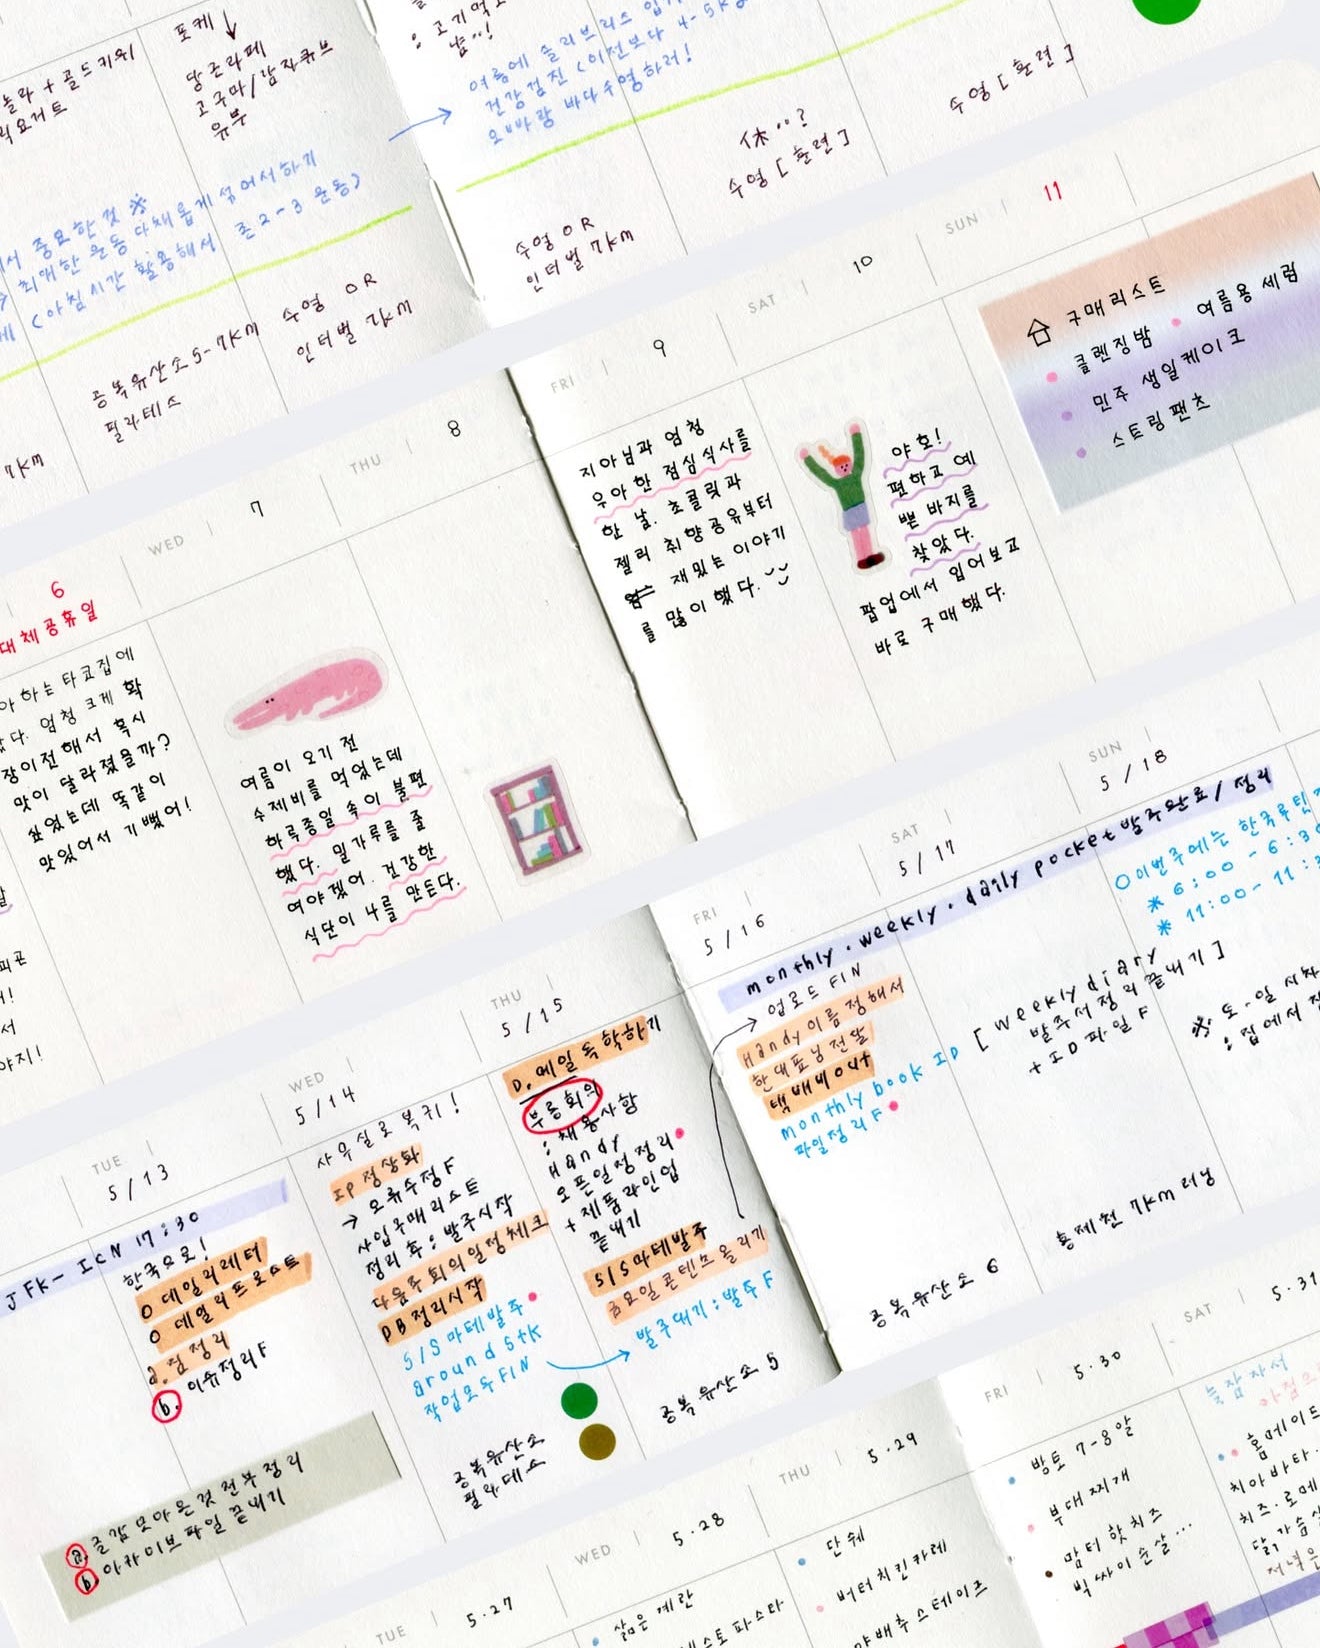 포케
당근라페
고구마/감자큐브
유부
놀라 + 골드키위
릭요거트
중요한것 ※
최대한 운동 다채롭게 섞어서하기
(아침시간 활용해서 존2-3 운동)
공복유산소 5-7km
필라테스
수영 OR
인터벌 7km
7km
: 고기먹
냠··!
여름에 슬리브리스 입기
건강검진 (이전보다 4-5kg
오빠랑 바다수영하러!
수영 OR
인터벌 7km
休··?
수영 [훈련]
수영 [훈련]
6
대체공휴일
아하는 타코집에
다. 엄청 크게 확
장이전해서 혹시
맛이 달라졌을까?
싶었는데 똑같이
맛있어서 기뻤어!
WED
7
여름이 오기 전
수제비를 먹었는데
하루종일 속이 불편
했다. 밀가루를 줄
여야겠어. 건강한
식단이 나를 만든다.
THU
8
FRI
9
지아님과 엄청
우아한 점심식사를
한 날. 초콜릿과
젤리 취향공유부터
재밌는 이야기
를 많이 했다.
SAT
10
야호!
편하고 예
쁜 바지를
찾았다.
팝업에서 입어보고
바로 구매했다.
SUN
11
구매리스트
클렌징밤
여름용 세럼
민주 생일케이크
스트링팬츠
TUE
5/13
JFK- ICN 17:30
한국으로!
O 데일리레터
O 데일리프로스트
a. 짐정리
b. 이슈정리F
a. 글감모아온것 전부정리
b. 아카이브파일 끝내기
WED
5/14
사무실로 복귀!
IP 정상화
→ 오류수정F
사입구매리스트
정리 후 : 발주시작
다음주 회의일정체크
DB정리시작
S/S 마테발주
around stk
작업모두FIN
공복유산소
필라테스
THU
5/15
D. 메일 독학하기
부릉회의
: 채용사항
Handy
오픈일정정리
+ 제품라인업
끝내기
S/S마테발주
금요일콘텐츠올리기
발주대기 : 발주F
공복유산소 5
FRI
5/16
monthly · weekly · daily pocket 발주완료/정리
업로드 FIN
Handy이름정해서
한대표님전달
택배배out
monthly book ID
파일정리F
공복유산소 6
SAT
5/17
[weekly diary
발주서정리끝내기]
+ ID파일F
홍제천 7km 러닝
SUN
5/18
O 이번주에는 한국루틴
* 6:00 - 6:30
* 11:00 - 11:
※ 토-일 시차
: 집에서
TUE
5.27
WED
5.28
삶은계란
스토파스타
THU
5.29
단쉐
버터치킨카레
양배추스테이크
FRI
5.30
방토 7-8알
부대찌개
맘터 핫치즈
빅싸이순살...
SAT
5.31
늦잠자서
홈메이드
치아바타.
치즈·로메
닭가슴살